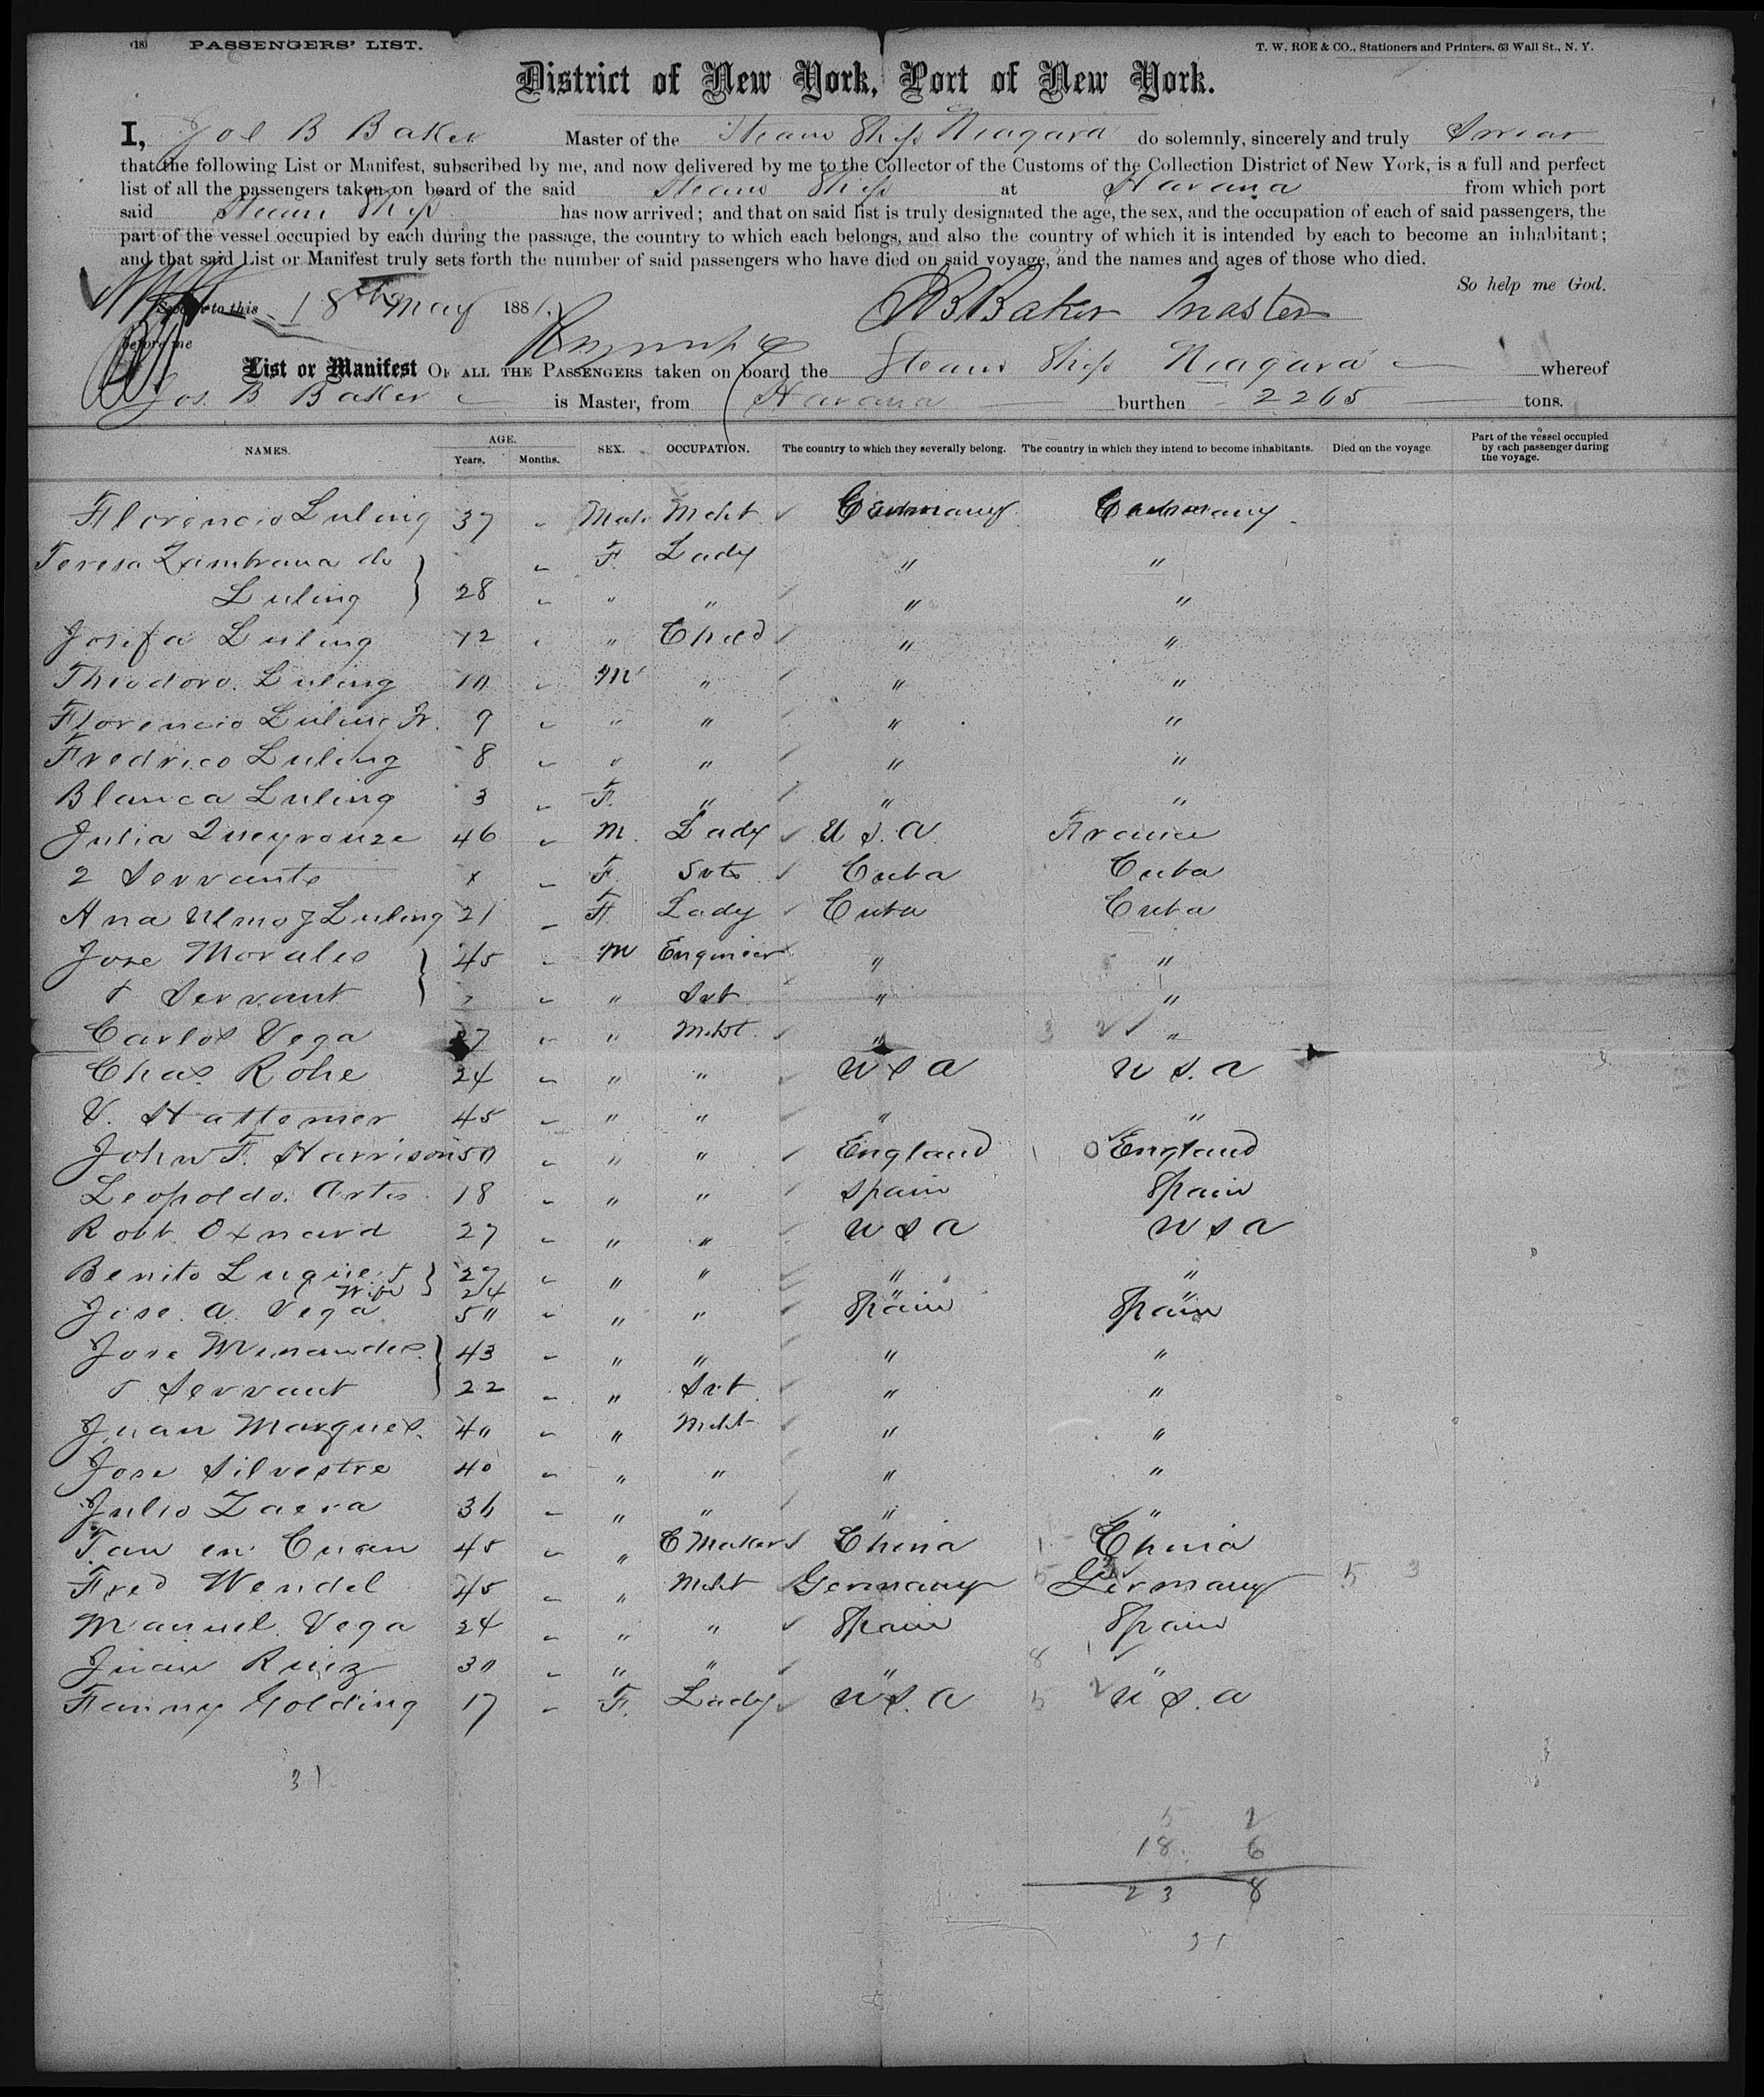 (18) PASSENGERS' LIST. T. W. ROE & CO., Stationers and Printers, 63 Wall St., N. Y.
District of New York, Port of New York.
I, Jos B Baker Master of the Steam Ship Niagara do solemnly, sincerely and truly Swear
that the following List or Manifest, subscribed by me, and now delivered by me to the Collector of the Customs of the Collection District of New York, is a full and perfect
list of all the passengers taken on board of the said Steam Ship at Havana from which port
said Steam Ship has now arrived; and that on said list is truly designated the age, the sex, and the occupation of each of said passengers, the
part of the vessel occupied by each during the passage, the country to which each belongs, and also the country of which it is intended by each to become an inhabitant;
and that said List or Manifest truly sets forth the number of said passengers who have died on said voyage, and the names and ages of those who died.
So help me God.
Sworn to this 18th May 1881. JBBaker Master
Before me
List or Manifest OF ALL THE PASSENGERS taken on board the Steam Ship Niagara whereof
Jos. B. Baker is Master, from Havana burthen 2265 tons.
NAMES. AGE. Years. Months. SEX. OCCUPATION. The country to which they severally belong. The country in which they intend to become inhabitants. Died on the voyage Part of the vessel occupied by each passenger during the voyage.
Florencio Luling 37 Male Mcht Germany Germany
Teresa Zambrana de F. Lady " "
Luling 28 " " " "
Josefa Luling 12 " Child " "
Theodoro Luling 10 M " " "
Florencio Luling Jr. 9 " " " "
Fredrico Luling 8 " " " "
Blanca Luling 3 F. " " "
Julia Queyrouze 46 M. Lady U.S.A. France
2 Servants x F. Svts Cuba Cuba
Ana Ulmo J Luling 21 F Lady Cuba Cuba
Jose Morales 45 M Engineer " "
& Servant " Svt " "
Carlos Vega 27 " Mcht " 3 2 "
Chas. Rohe 24 " " U S A U S. A
V. Hattemer 45 " " " "
John F. Harrison 50 " " England 1 0 England
Leopoldo Artes 18 " " Spain Spain
Robt. Oxnard 27 " " U S A U S A
Benito Lugues & 27 " " " "
Wife 24 " "
Jose. A. Vega 50 " " Spain Spain
Jose Menandes 43 " " " "
& Servant 22 " Svt " "
Juan Marques 40 " Mcht " "
Jose Silvestre 40 " " " "
Julio Zaera 36 " " " "
Tan en Cuan 45 " C Maker China 1 China
Fred Wendel 45 " Mcht Germany 5 Germany 5 3
Manuel Vega 24 " " Spain Spain
Juan Ruiz 30 " " " 8 1 "
Fanny Golding 17 F. Lady U S. A 5 2 U S. A
31
5 2
18 6
23 8
31